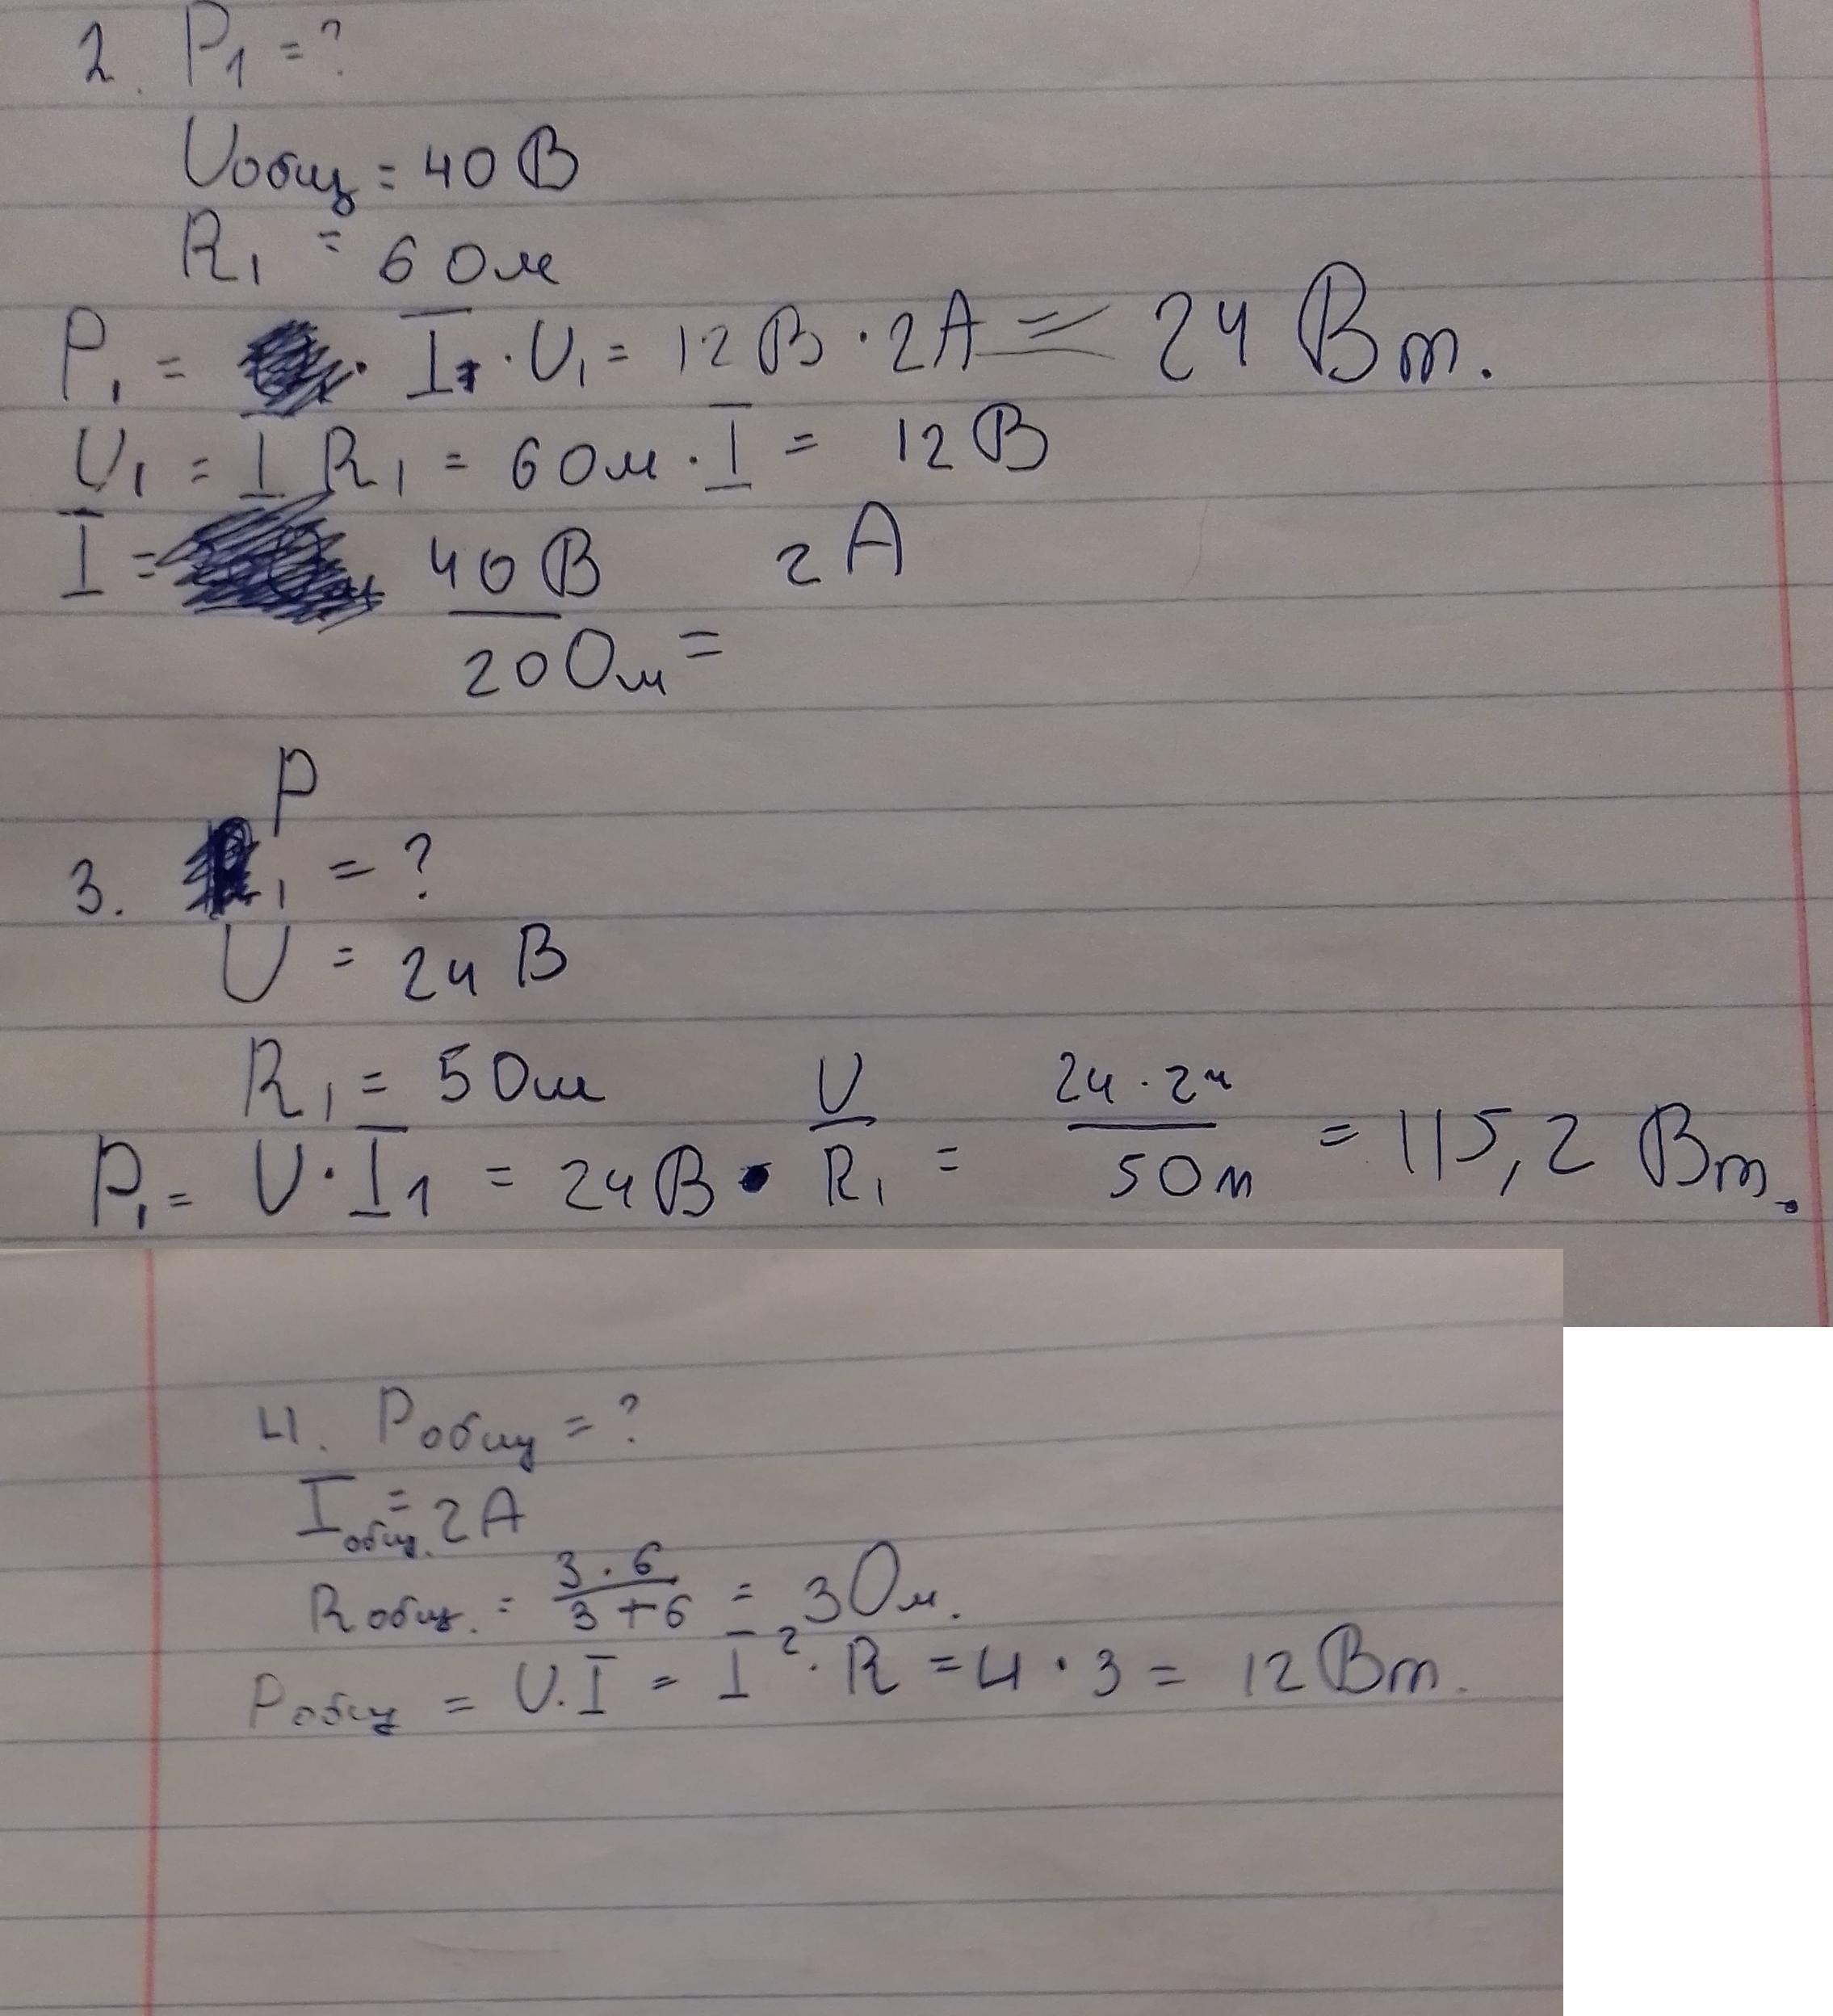 2. P₁ = ?
Uобщ = 40 В
R₁ = 6 Ом
P₁ = · I₁ · U₁ = 12 В · 2А = 24 Вт.
U₁ = I R₁ = 6 Ом · I = 12 В
I = 40 В / 20 Ом = 2 А
3. P₁ = ?
U = 24 В
R₁ = 5 Ом
P₁ = U · I₁ = 24 В · U / R₁ = 24 · 24 / 5 Ом = 115,2 Вт.
4. Pобщ = ?
Iобщ. = 2 А
Rобщ. = 3 · 6 / 3 + 6 = 3 Ом.
Pобщ = U · I = I² · R = 4 · 3 = 12 Вт.